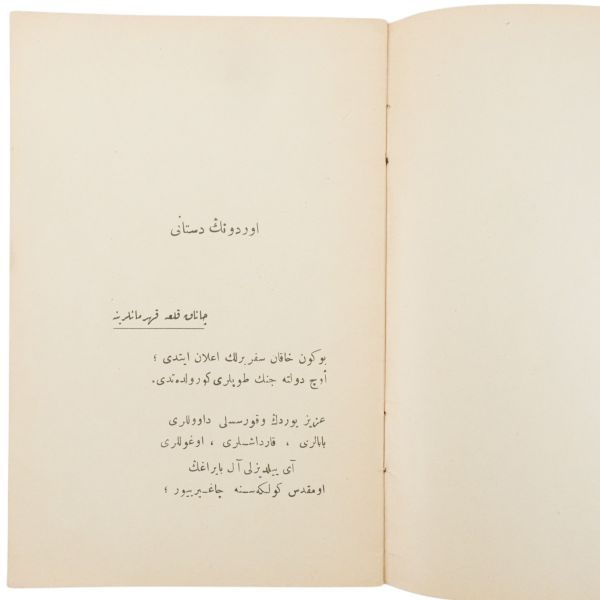 اوردونڭ دستانی
چناق قلعه قهرمانلرینه
بوكون خاقان سفربرلك اعلان ایتدی ؛
اوچ دولته جنك طوپلری كورولده‌تدی.
عزیز یوردڭ وقورسسلی داووللری
بابالری ، قارداشلری ، اوغوللری
آی ییلدیزلی آل بایراغڭ
اومقدس كولكه‌سنه چاغیرییور ؛